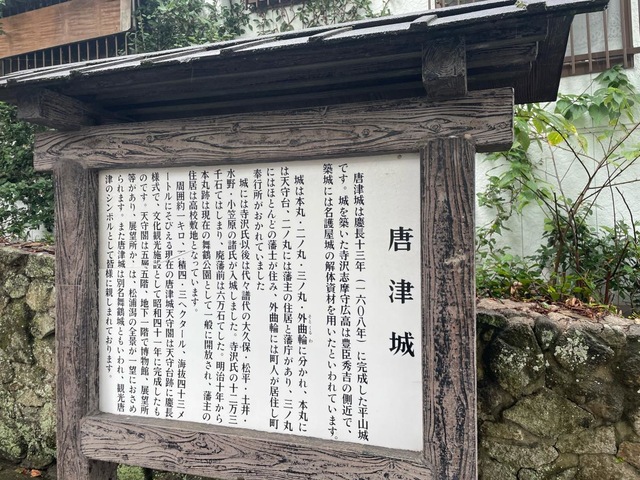 唐津城
唐津城は慶長十三年（一六〇八年）に完成した平山城
です。城を築いた寺沢志摩守広高は豊臣秀吉の側近で、
築城には名護屋城の解体資材を用いたといわれています。
城は本丸・二ノ丸・三ノ丸・外曲輪に分かれ、本丸に
は天守台、二ノ丸には藩主の住居と藩庁があり、三ノ丸
にはほとんどの藩士が住み、外曲輪には町人が居住し町
奉行所がおかれていました
城には寺沢氏以後は代々譜代の大久保・松平・土井・
水野・小笠原の諸氏が入城しました。寺沢氏の十二万三
千石てはしまり、廃藩前は六万石てした。明治十年から
本丸跡は現在の舞鶴公園として一般に開放され、藩主の
住居は高校敷地となっています。
周囲約一キロ、面積四・三ヘクタール、海抜四十三メ
ートルにそびえる現在の唐津城天守閣は天守台跡に慶長
様式で、文化観光施設として昭和四十一年に完成したも
のです。天守閣は五層五階、地下一階で博物館、展望所
等があり、展望所か．は、松浦潟の全景が一望におさめ
られます。また唐津城は別名舞鶴城ともいわれ、観光唐
津のシンボルとして皆様に親しまれております。